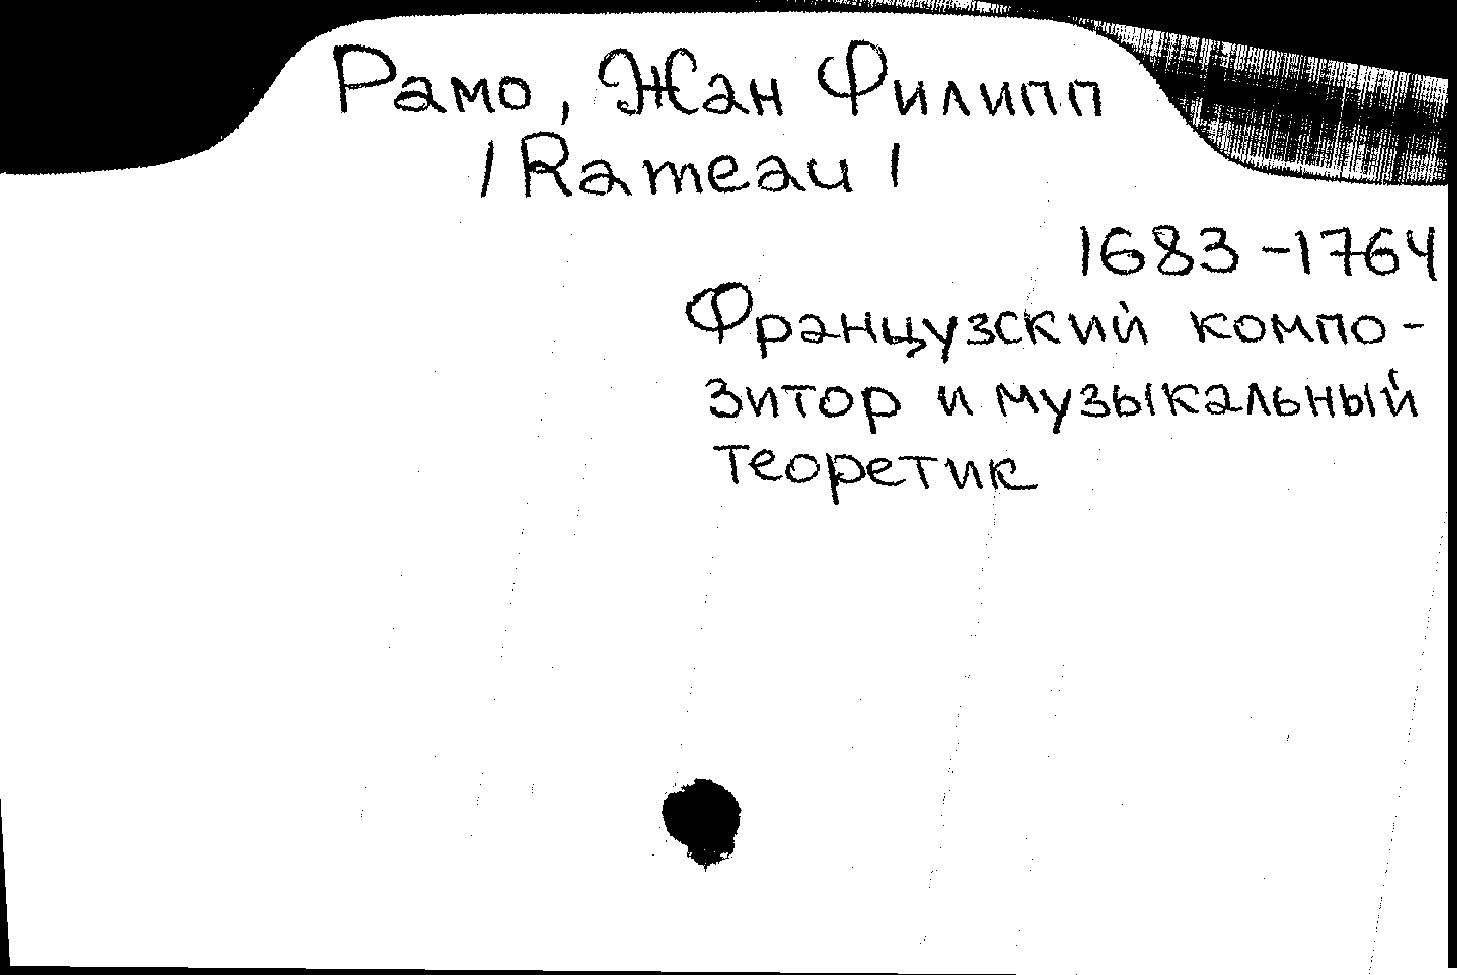 Рамо, Жан Филипп
/Rameau/
1683-1764
Французский компо-
зитор и музыкальный
теоретик